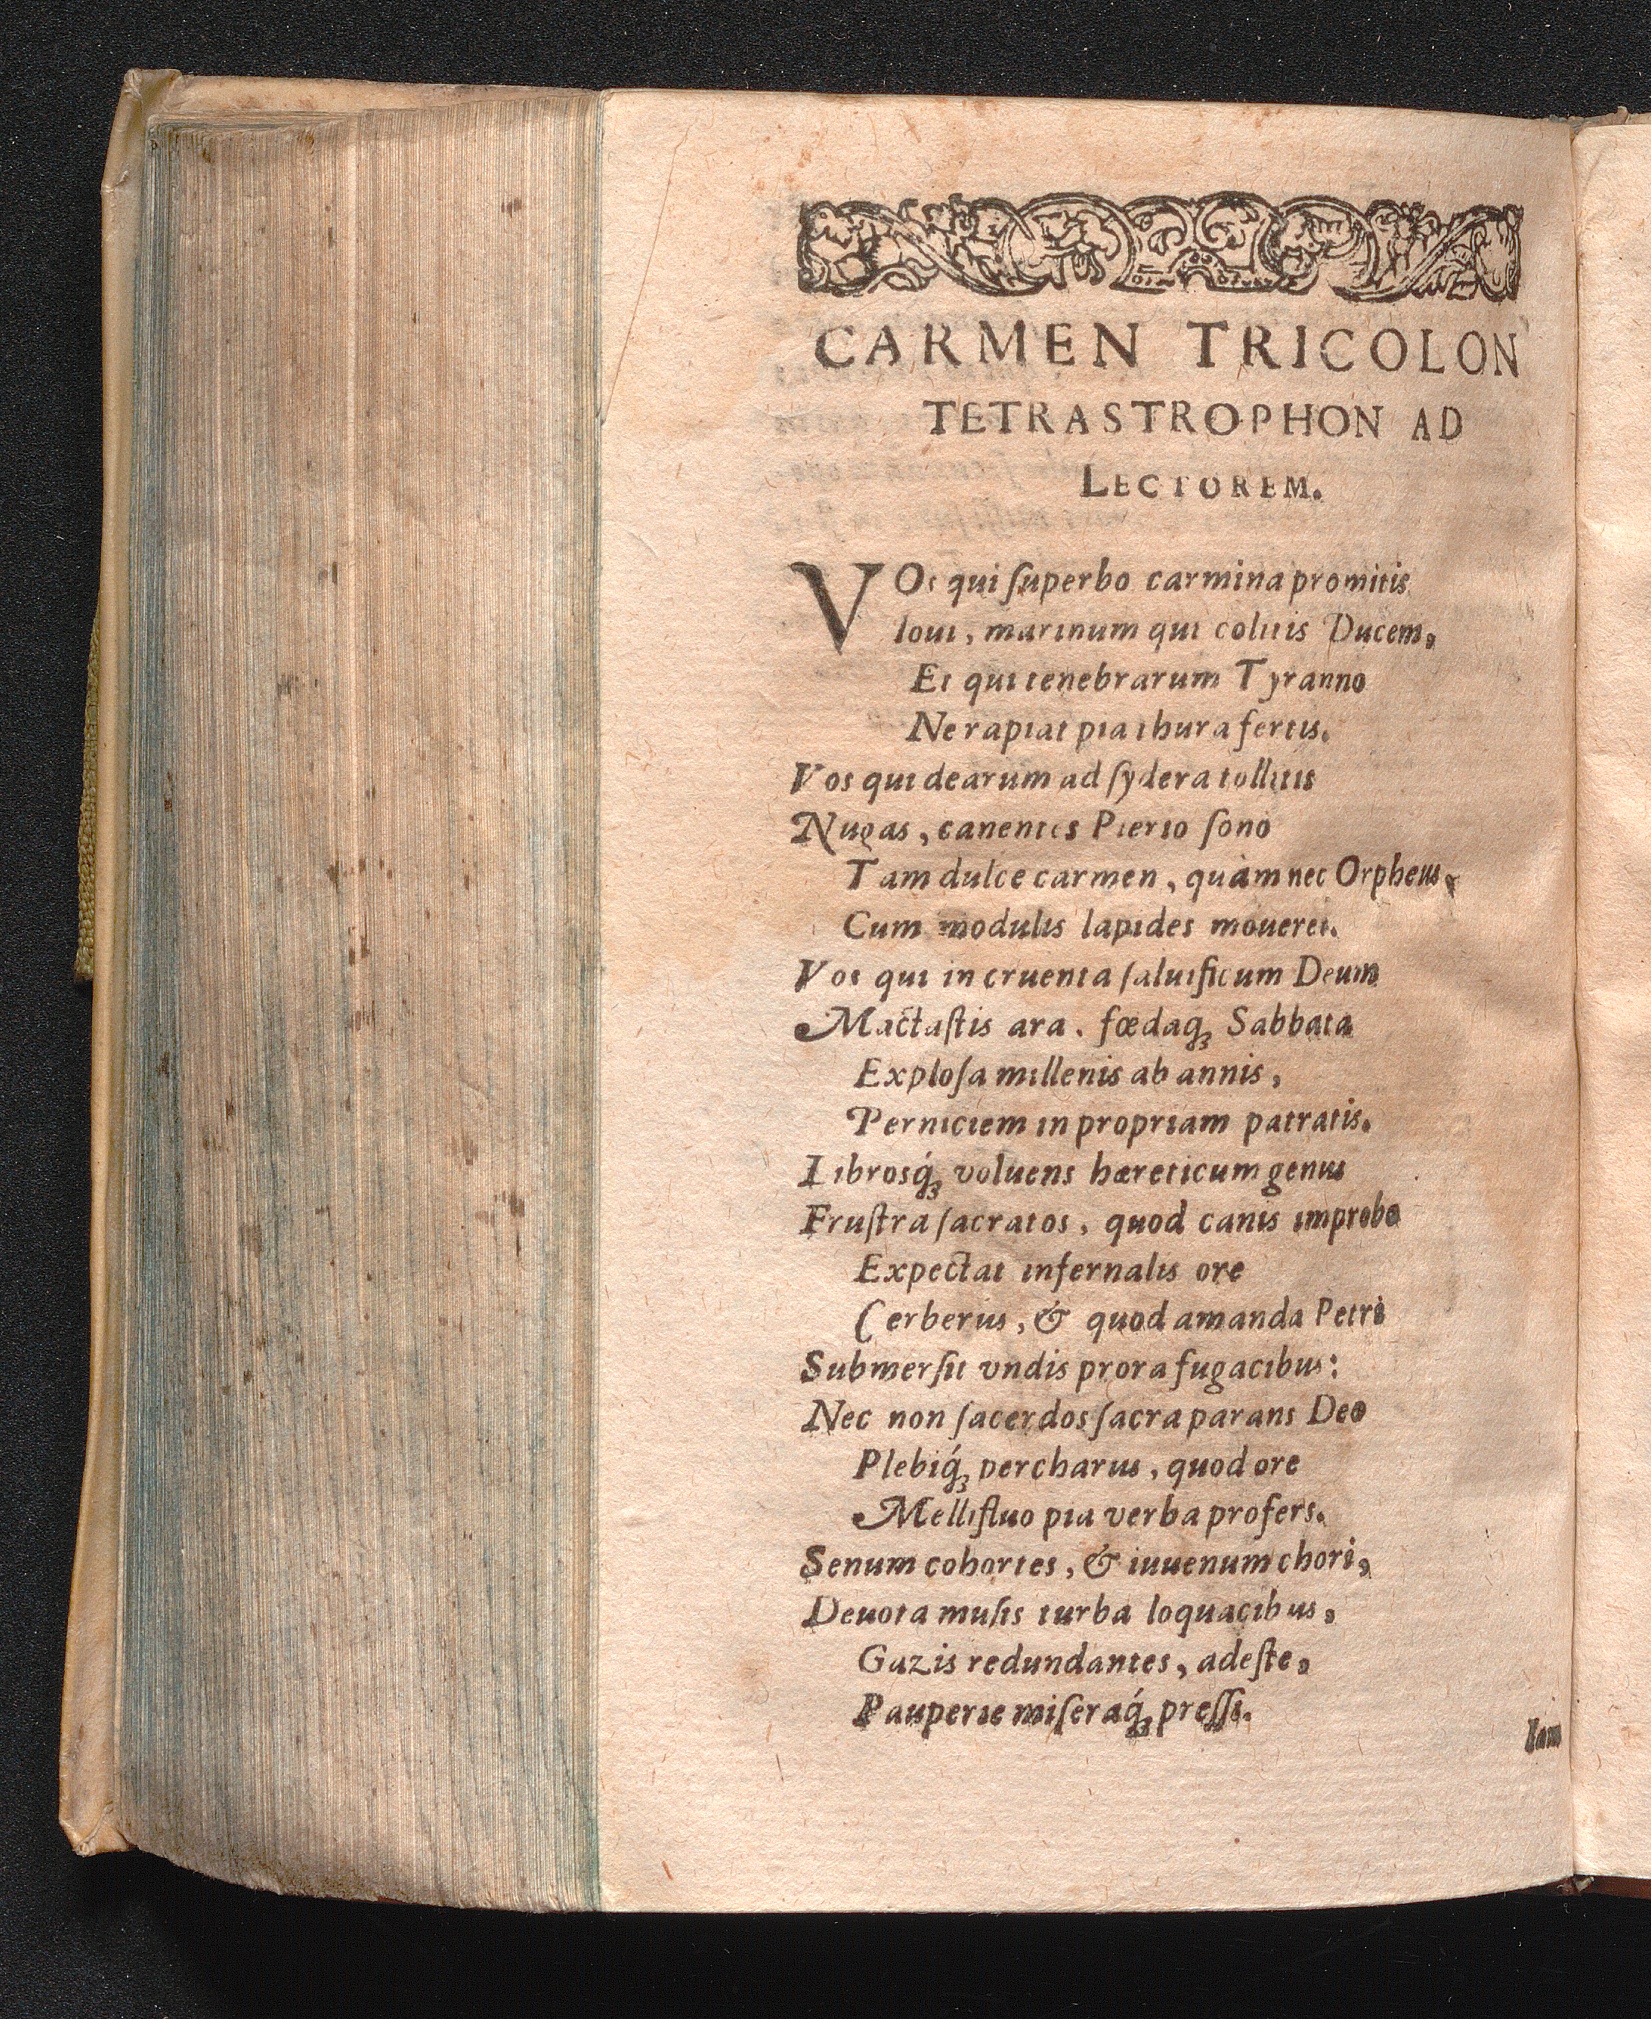 CARMEN TRICOLON
TETRASTROPHON AD
LECTOREM.
VOs qui ſuperbo carmina promitis
Ioui, marinum qui colitis Ducem,
Et qui tenebrarum Tyranno
Ne rapiat pia thura fertis.
Vos qui dearum ad ſydera tollitis
Nugas, canentes Pierio ſono
Tam dulce carmen, quàm nec Orpheus,
Cum modulis lapides moueret.
Vos qui in cruenta ſaluificum Deum
Mactaſtis ara, fœdaq́; Sabbata
Exploſa millenis ab annis,
Perniciem in propriam patratis.
Librosq́; voluens hæreticum genus
Fruſtra ſacratos, quod canis improbo
Expectat infernalis ore
Cerberus, & quod amanda Petri
Submerſit vndis prora fugacibus:
Nec non ſacerdos ſacra parans Deo
Plebiq́; percharus, quod ore
Mellifluo pia verba profers.
Senum cohortes, & iuuenum chori,
Deuota muſis turba loquacibus,
Gazis redundantes, adeſte,
Pauperie miſeraq́; preſſi.
Iam